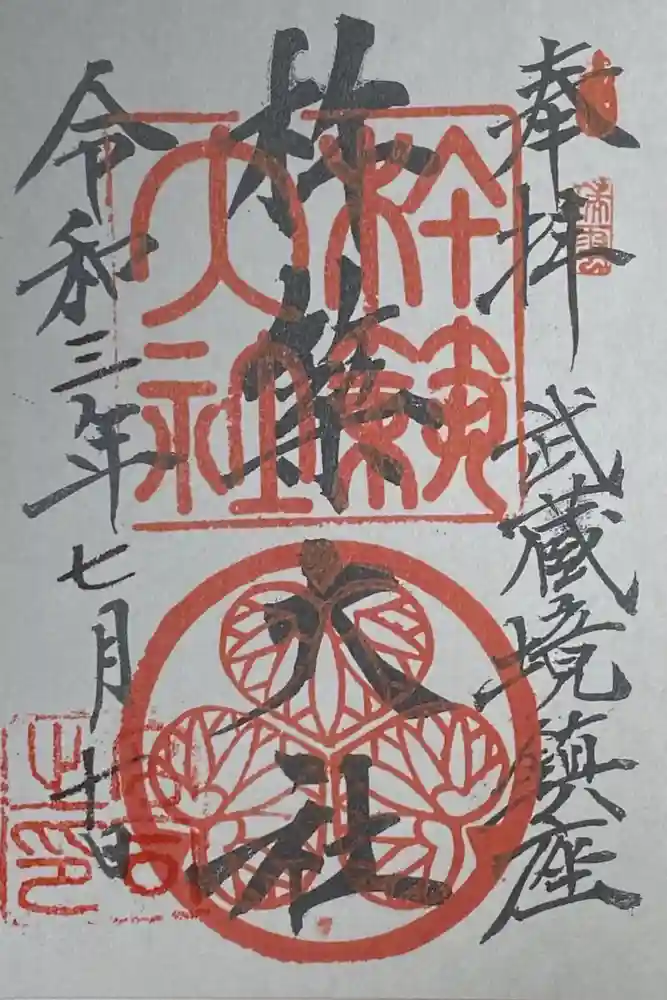 奉拝 武蔵境鎮座
杵築大社
令和三年七月十日
杵築
大社
宮司
之印